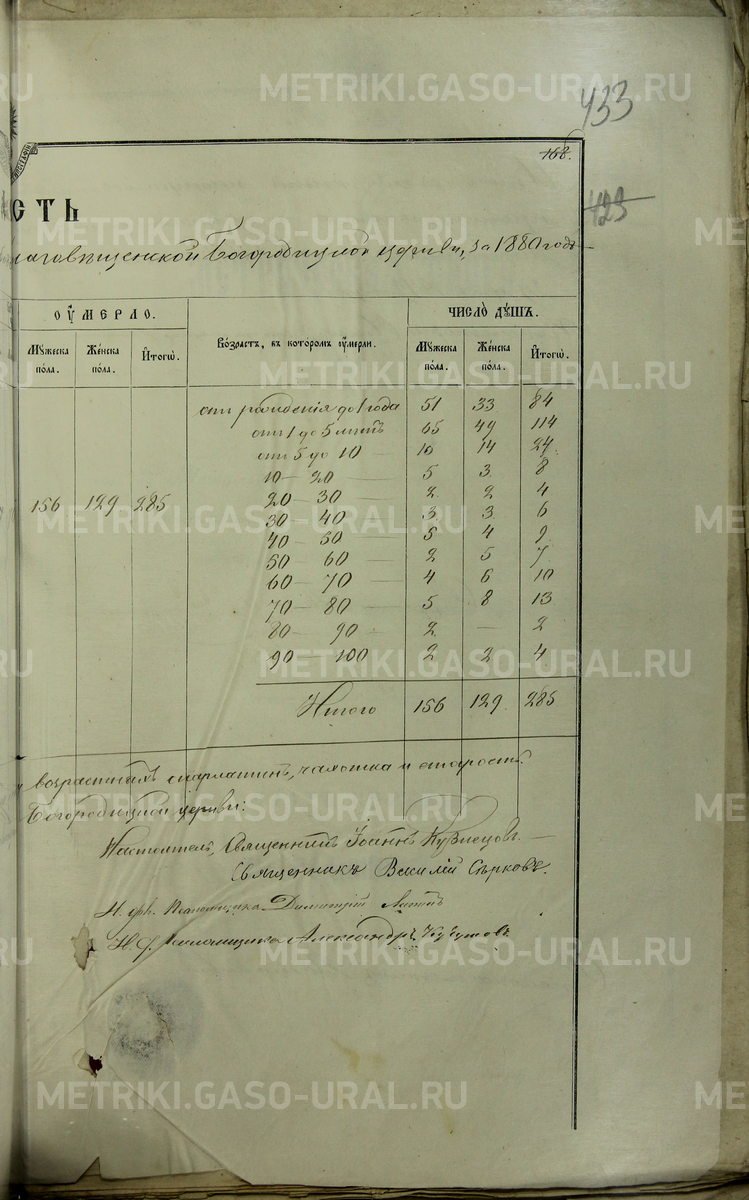 METRIKI.GASO-URAL.RU
433
168.
423
СТЬ
Благовѣщенской Богородицкой церкви, за 1880 годъ
ОУМЕРЛО.
ЧИСЛО ДУШЪ.
Мужеска пола. Женска пола. Итогѡ.
Возрастъ, въ которомъ оумерли.
Мужеска пола. Женска пола. Итогѡ.
отъ рожденія до 1 года 51 33 84
отъ 1 до 5 лѣтъ 65 49 114
отъ 5 до 10 — 10 14 24
10 — 20 — 5 3 8
156 129 285
20 — 30 — 2 2 4
30 — 40 — 3 3 6
40 — 50 — 5 4 9
50 60 — 2 5 7
60 — 70 — 4 6 10
70 — 80 — 5 8 13
80 — 90 — 2 — 2
90 100 — 2 2 4
Итого 156 129 285
возрастамъ скарлатина, чахотка и старость.
Богородицкой церкви:
Настоятель, Священникъ Іоаннъ Кузнецовъ.
Священникъ Василій Сѣрковъ.
И. д. Псаломщика Димитрій
И. д. Псаломщика Александръ
METRIKI.GASO-URAL.RU